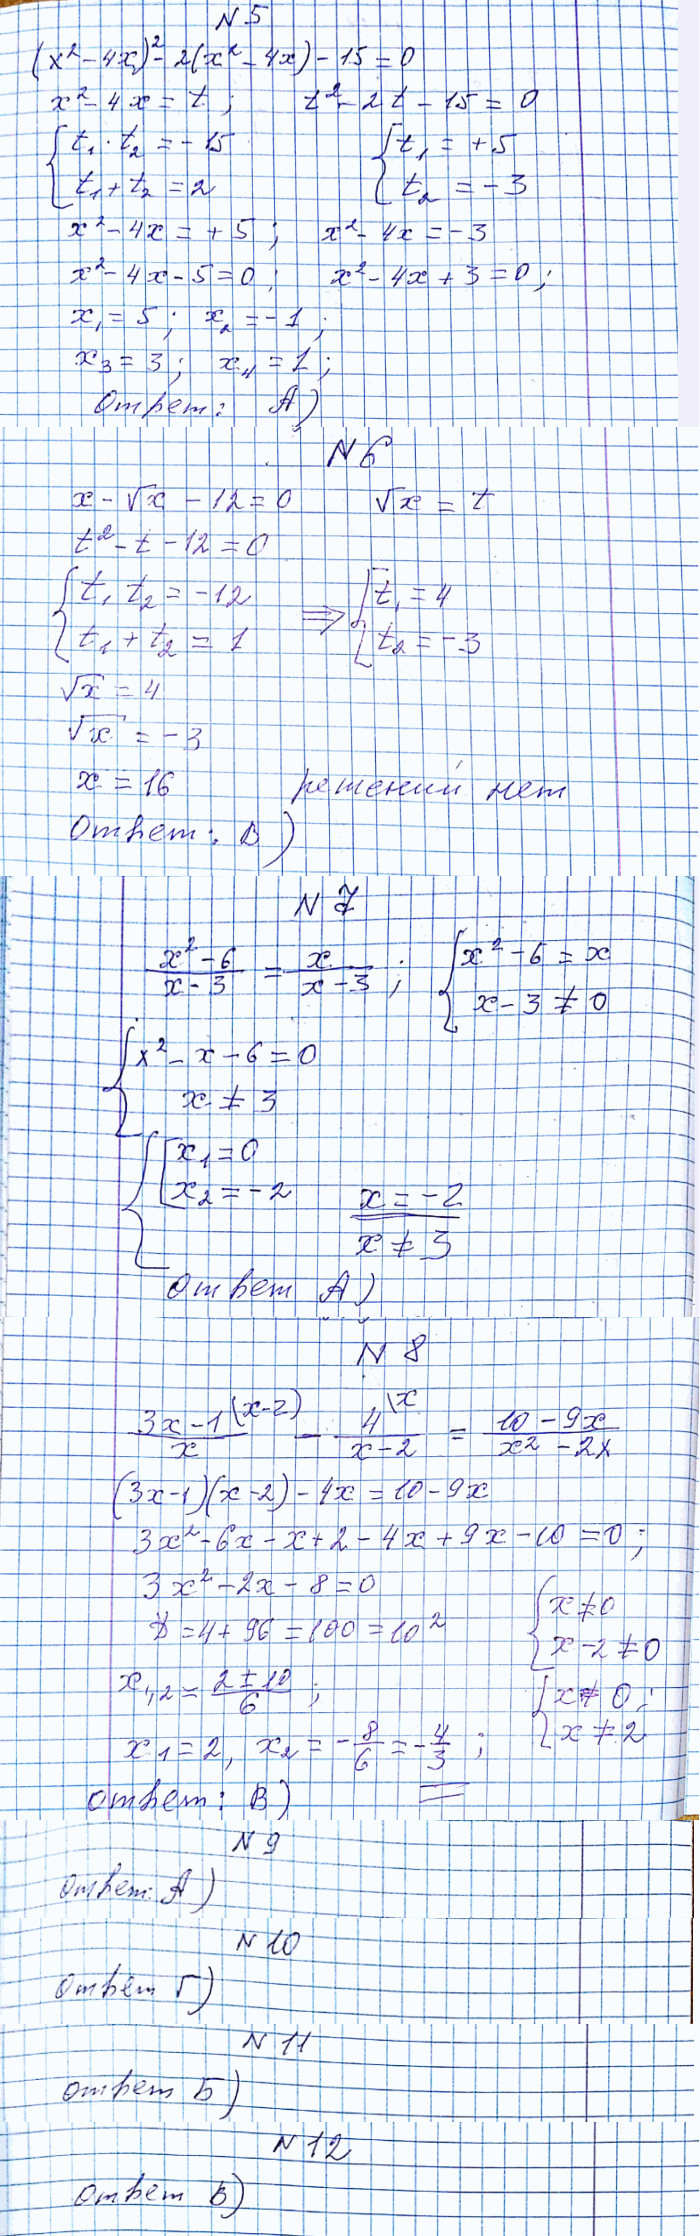 N 5
(x² - 4x)² - 2(x² - 4x) - 15 = 0
x² - 4x = t ; t² - 2t - 15 = 0
{ t₁ · t₂ = -15 { t₁ = +5
{ t₁ + t₂ = 2 { t₂ = -3
x² - 4x = +5 ; x² - 4x = -3
x² - 4x - 5 = 0 ; x² - 4x + 3 = 0 ;
x₁ = 5 ; x₂ = -1 ;
x₃ = 3 ; x₄ = 1 ;
Ответ: А)
N 6
x - √x - 12 = 0 √x = t
t² - t - 12 = 0
{ t₁ t₂ = -12 ⇒ [ t₁ = 4
{ t₁ + t₂ = 1 [ t₂ = -3
√x = 4
√x = -3
x = 16 решений нет
Ответ: В)
N 7
(x² - 6)/(x - 3) = x/(x - 3) ; { x² - 6 = x
{ x - 3 ≠ 0
{ x² - x - 6 = 0
{ x ≠ 3
{ [ x₁ = 0
[ x₂ = -2 x = -2
x ≠ 3
Ответ А)
N 8
(3x - 1)/x \(x-2) - 4/(x - 2) \x = (10 - 9x)/(x² - 2x)
(3x - 1)(x - 2) - 4x = 10 - 9x
3x² - 6x - x + 2 - 4x + 9x - 10 = 0 ;
3x² - 2x - 8 = 0
D = 4 + 96 = 100 = 10²
{ x ≠ 0
{ x - 2 ≠ 0
x₁,₂ = (2 ± 10)/6 ;
{ x ≠ 0 ;
{ x ≠ 2
x₁ = 2, x₂ = -8/6 = -4/3 ;
Ответ: В)
N 9
Ответ: А)
N 10
Ответ Г)
N 11
Ответ Б)
N 12
Ответ Б)